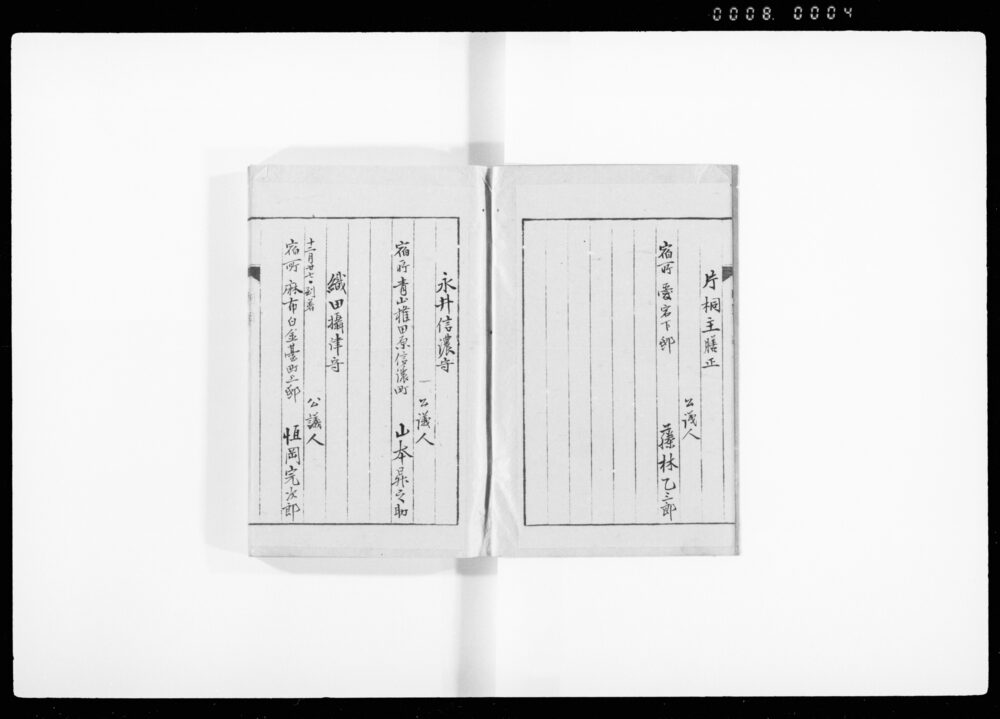 0008. 0004
片桐主膳正
公議人
宿所 愛宕下邸
藤林乙三郎
永井信濃守
公議人
宿所 青山権田原信濃町
山本昇之助
織田攝津守
十二月廿七日到着
公議人
宿所 麻布白金臺町上邸
恒岡完次郎